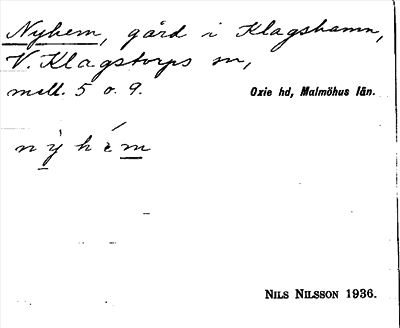 Nyhem, gård i Klagshamn,
V. Klagstorps sn,
mell. 5 o. 9. Oxie hd, Malmöhus län.
nỳ̱ hém̱
NILS NILSSON 1936.